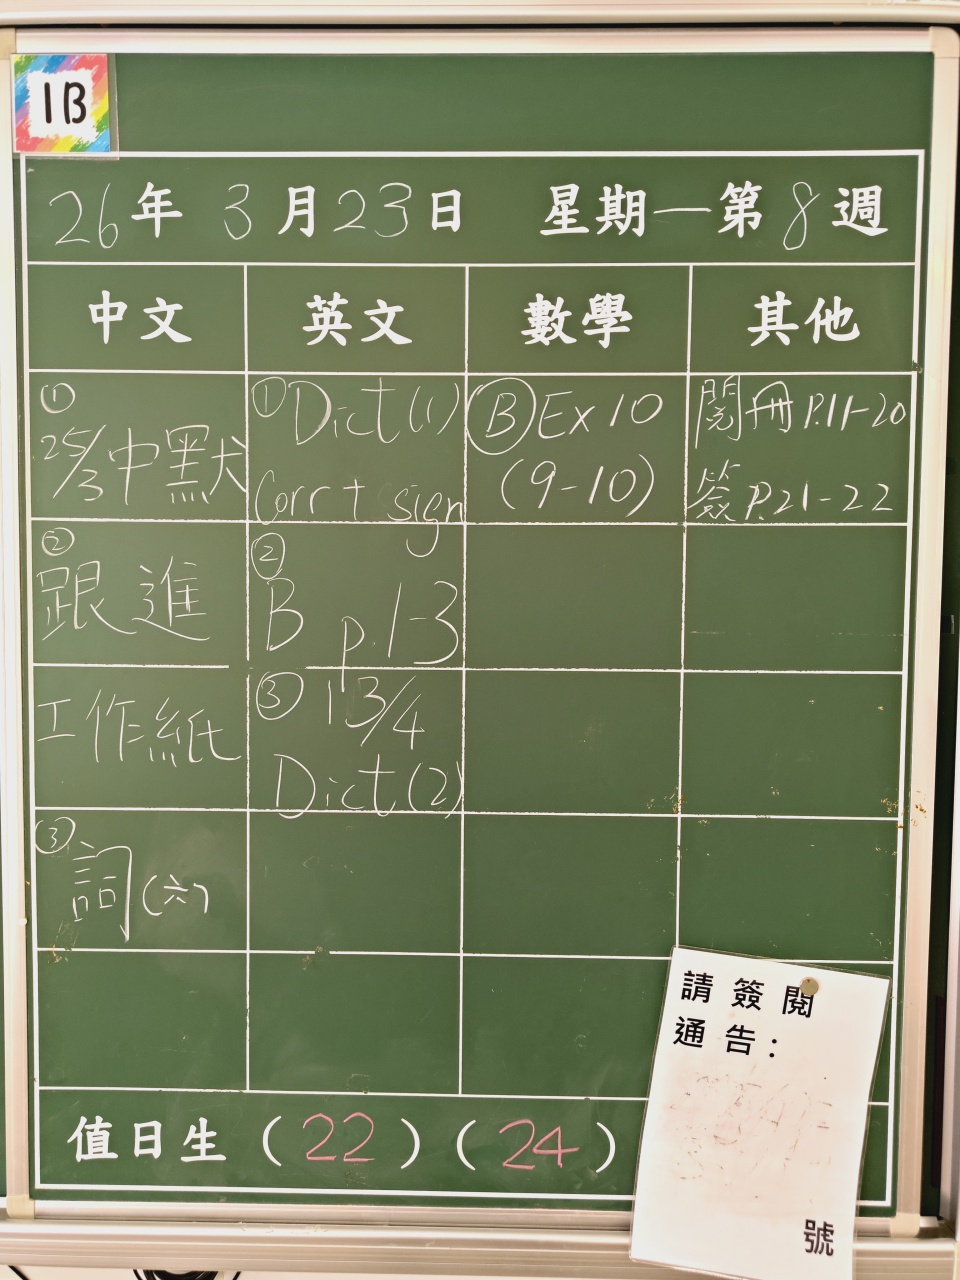 1B
26年 3月23日 星期一第8週
中文
英文
數學
其他
①
25/3中默
②
跟進
工作紙
③
詞(六)
① Dict(1)
Corr + sign
②
B p.1-3
③ 13/4
Dict(2)
Ⓑ Ex 10
(9-10)
閱冊 P.11-20
簽 P.21-22
值日生 (22) (24)
請簽閱
通告：
號